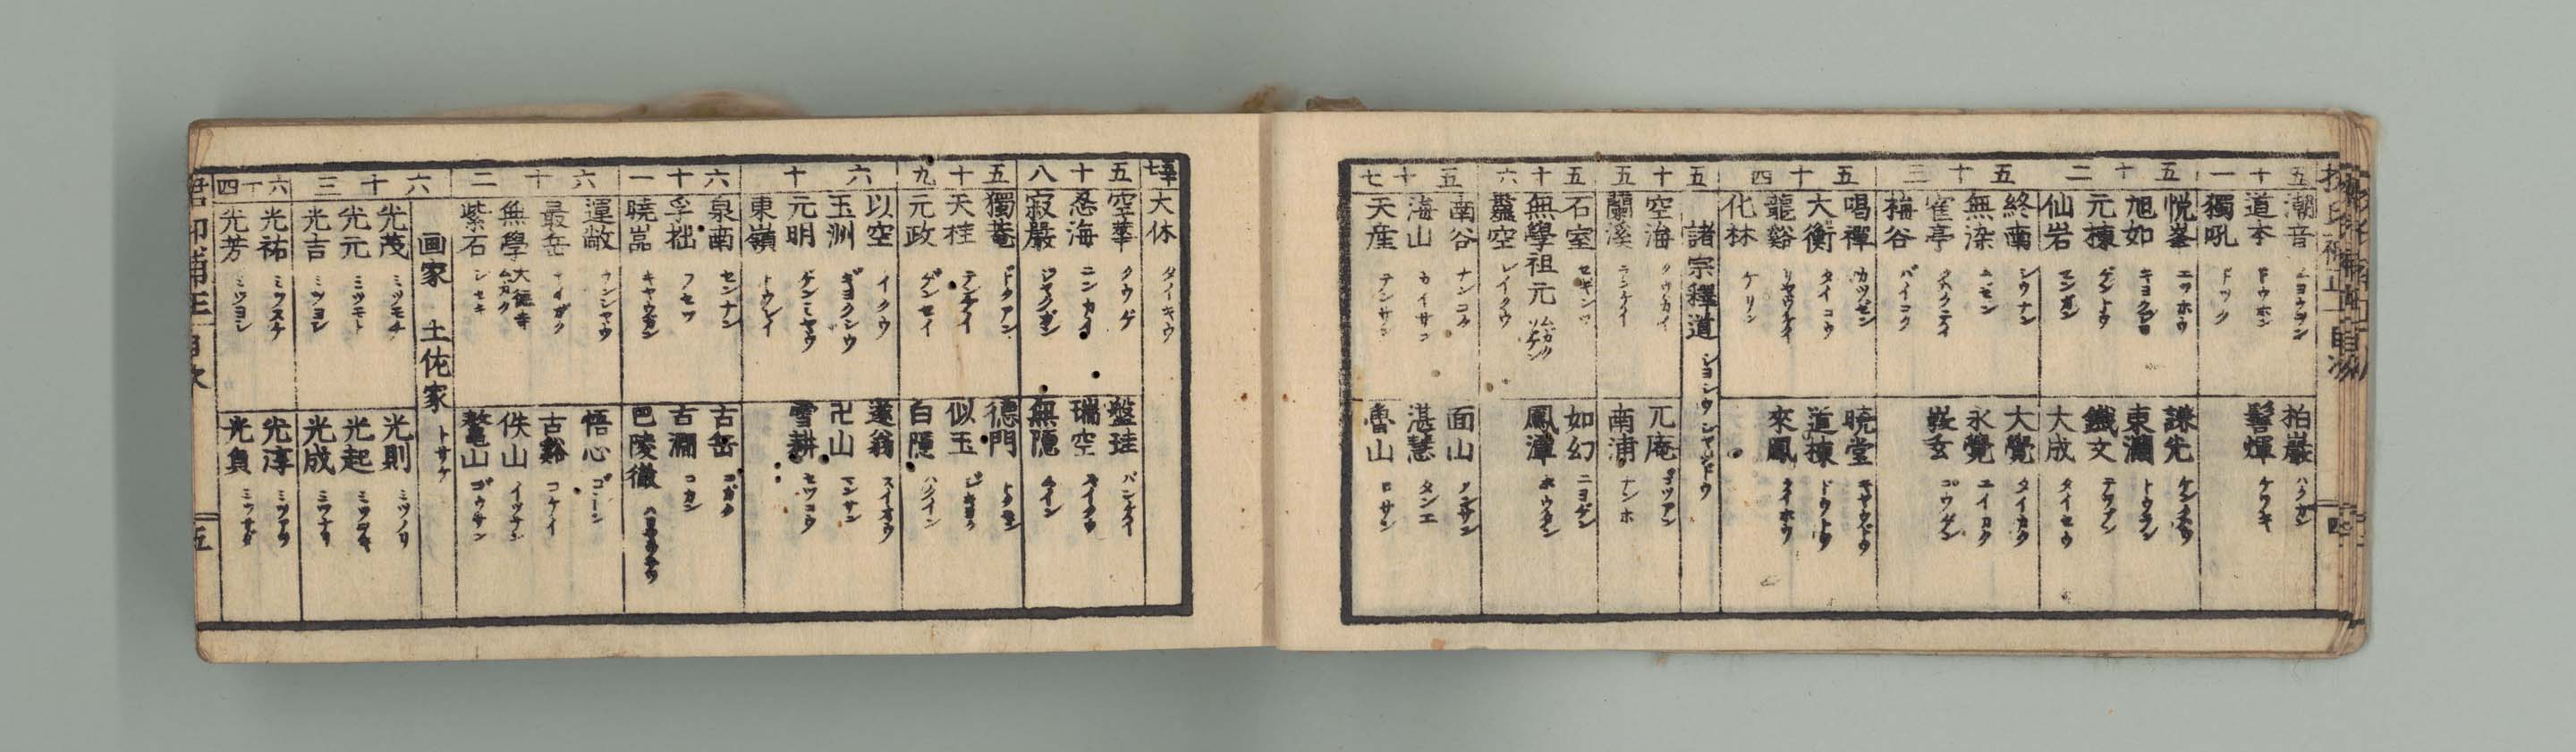 五十一
潮音 チヨウヲン
道本 ドウホン
獨吼 ドツク
柏巖 ハクガン
聱煇
五十二
悦峯 エツホウ
旭如 キヨクジヨ
元棟 ゲントウ
仙岩 センガン
謙光 ケンクワウ
東瀾 トウラン
鐵文 テツブン
大成 タイセウ
五十三
終南 シウナン
無染 ムセン
寉亭 クハクテイ
梅谷 バイコク
大覺 タイカク
永覺 エイカク
嵿玄
五十四
唱禪
大衡 タイコウ
龍谿
化林 ケリン
暁堂 キヤウドウ
道棟 ドウトウ
來鳳 ライホウ
五
諸宗釋道 シヨシウシヤドウ
十五
空海 クウカイ
蘭溪 ランケイ
兀庵 ゴツアン
南浦 ナンホ
五十六
石室 セキシツ
無學祖元 ムガクソゲン
靈空 レイクウ
如幻 ニヨゲン
鳳潭 ホウタン
五十七
南谷 ナンコク
海山 カイサン
天産 テンサン
面山 メンサン
湛慧 タンエ
魯山 ロサン
大休 タイキウ
五十八
空華 クウゲ
忍海 ニンカイ
寂嚴 ジヤクゴン
盤珪 バンケイ
瑞空 ズイクウ
無隠 ムイン
五十九
獨菴 ドクアン
天桂 テンケイ
元政 ゲンセイ
德門 トクモン
似玉 ジギヨク
白隠 ハクイン
六十
以空 イクウ
玉洲 ギヨクシウ
元明 ゲンミヤウ
東嶺 トウレイ
遂翁 スイオウ
卍山 マンサン
雪耕 セツコウ
六十一
泉南 センナン
孚拙 フセツ
暁嵓 キヤウガン
古岳 コガク
古澗 コカン
巴陵徹
六十二
運敞 ウンシヤウ
最岳 サイガク
無學 大徳寺 ムガク
紫石 シセキ
悟心 ゴシン
古谿 コケイ
佚山 イツサン
鼇山 ゴウサン
画家 土佐家 トサケ
六十三
光茂 ミツモチ
光元 ミツモト
光吉 ミツヨシ
光則 ミツノリ
光起 ミツヲキ
光成 ミツナリ
六十四
光祐 ミツスケ
光芳 ミツヨシ
光淳 ミツアツ
光貞 ミツサダ
五